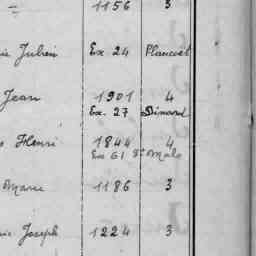 = 1156 3
Julien Ex. 24 Plancoët
Jean 1901 4
Ex. 27 Dinard
Henri 1844 4
Ex 61 St Malo
Marie 1186 3
Joseph 1224 3